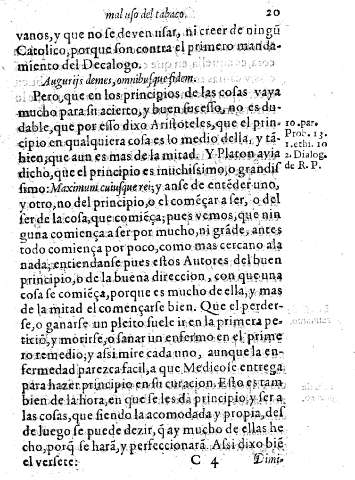 mal uso del tabaco. 20
vanos, y que no se deven usar, ni creer de ningũ
Catolico, porque son contra el primero manda-
miento del Decalogo.
Augurijs demes, omnibusque fidem.
Pero, que en los principios de las cosas vaya
mucho para su acierto, y buen sucesso, no es du-
dable, que por esso dixo Aristoteles, que el prin-
cipio en qualquiera cosa es lo medio della, y tã-
bien, que aun es mas de la mitad. Y Platon avia
dicho, que el principio es muchissimo, o grandis
simo: Maximum cuiusque rei; y anse de entẽder uno,
y otro, no del principio, o el començar a ser, o del
ser de la cosa, que comiẽça; pues vemos, que nin
guna comiença a ser por mucho, ni grãde, antes
todo comiença por poco, como mas cercano ala
nada; entiendanse pues estos Autores del buen
principio, o de la buena direccion, con que una
cosa se comiẽça, porque es mucho de ella, y mas
de la mitad el començarse bien. Que el perder-
se, o ganarse un pleito suele ir en la primera pe-
ticiõ, y morirse, o sanar un enfermo en el prime
ro remedio; y assi mire cada uno, aunque la en-
fermedad parezca facil, a que Medico se entrega
para hazer principio en su curacion. Esto es tam
bien de la hora, en que se les da principio, y ser a
las cosas, que siendo la acomodada y propia, des
de luego se puede dezir, q̃ ay mucho de ellas he
cho, porq̃ se harà, y perfeccionarà. Assi dixo biẽ
el versete: C 4 Dimi-
10. par.
Prob. 13.
1. ethi. 10
2. Dialog.
de R. P.